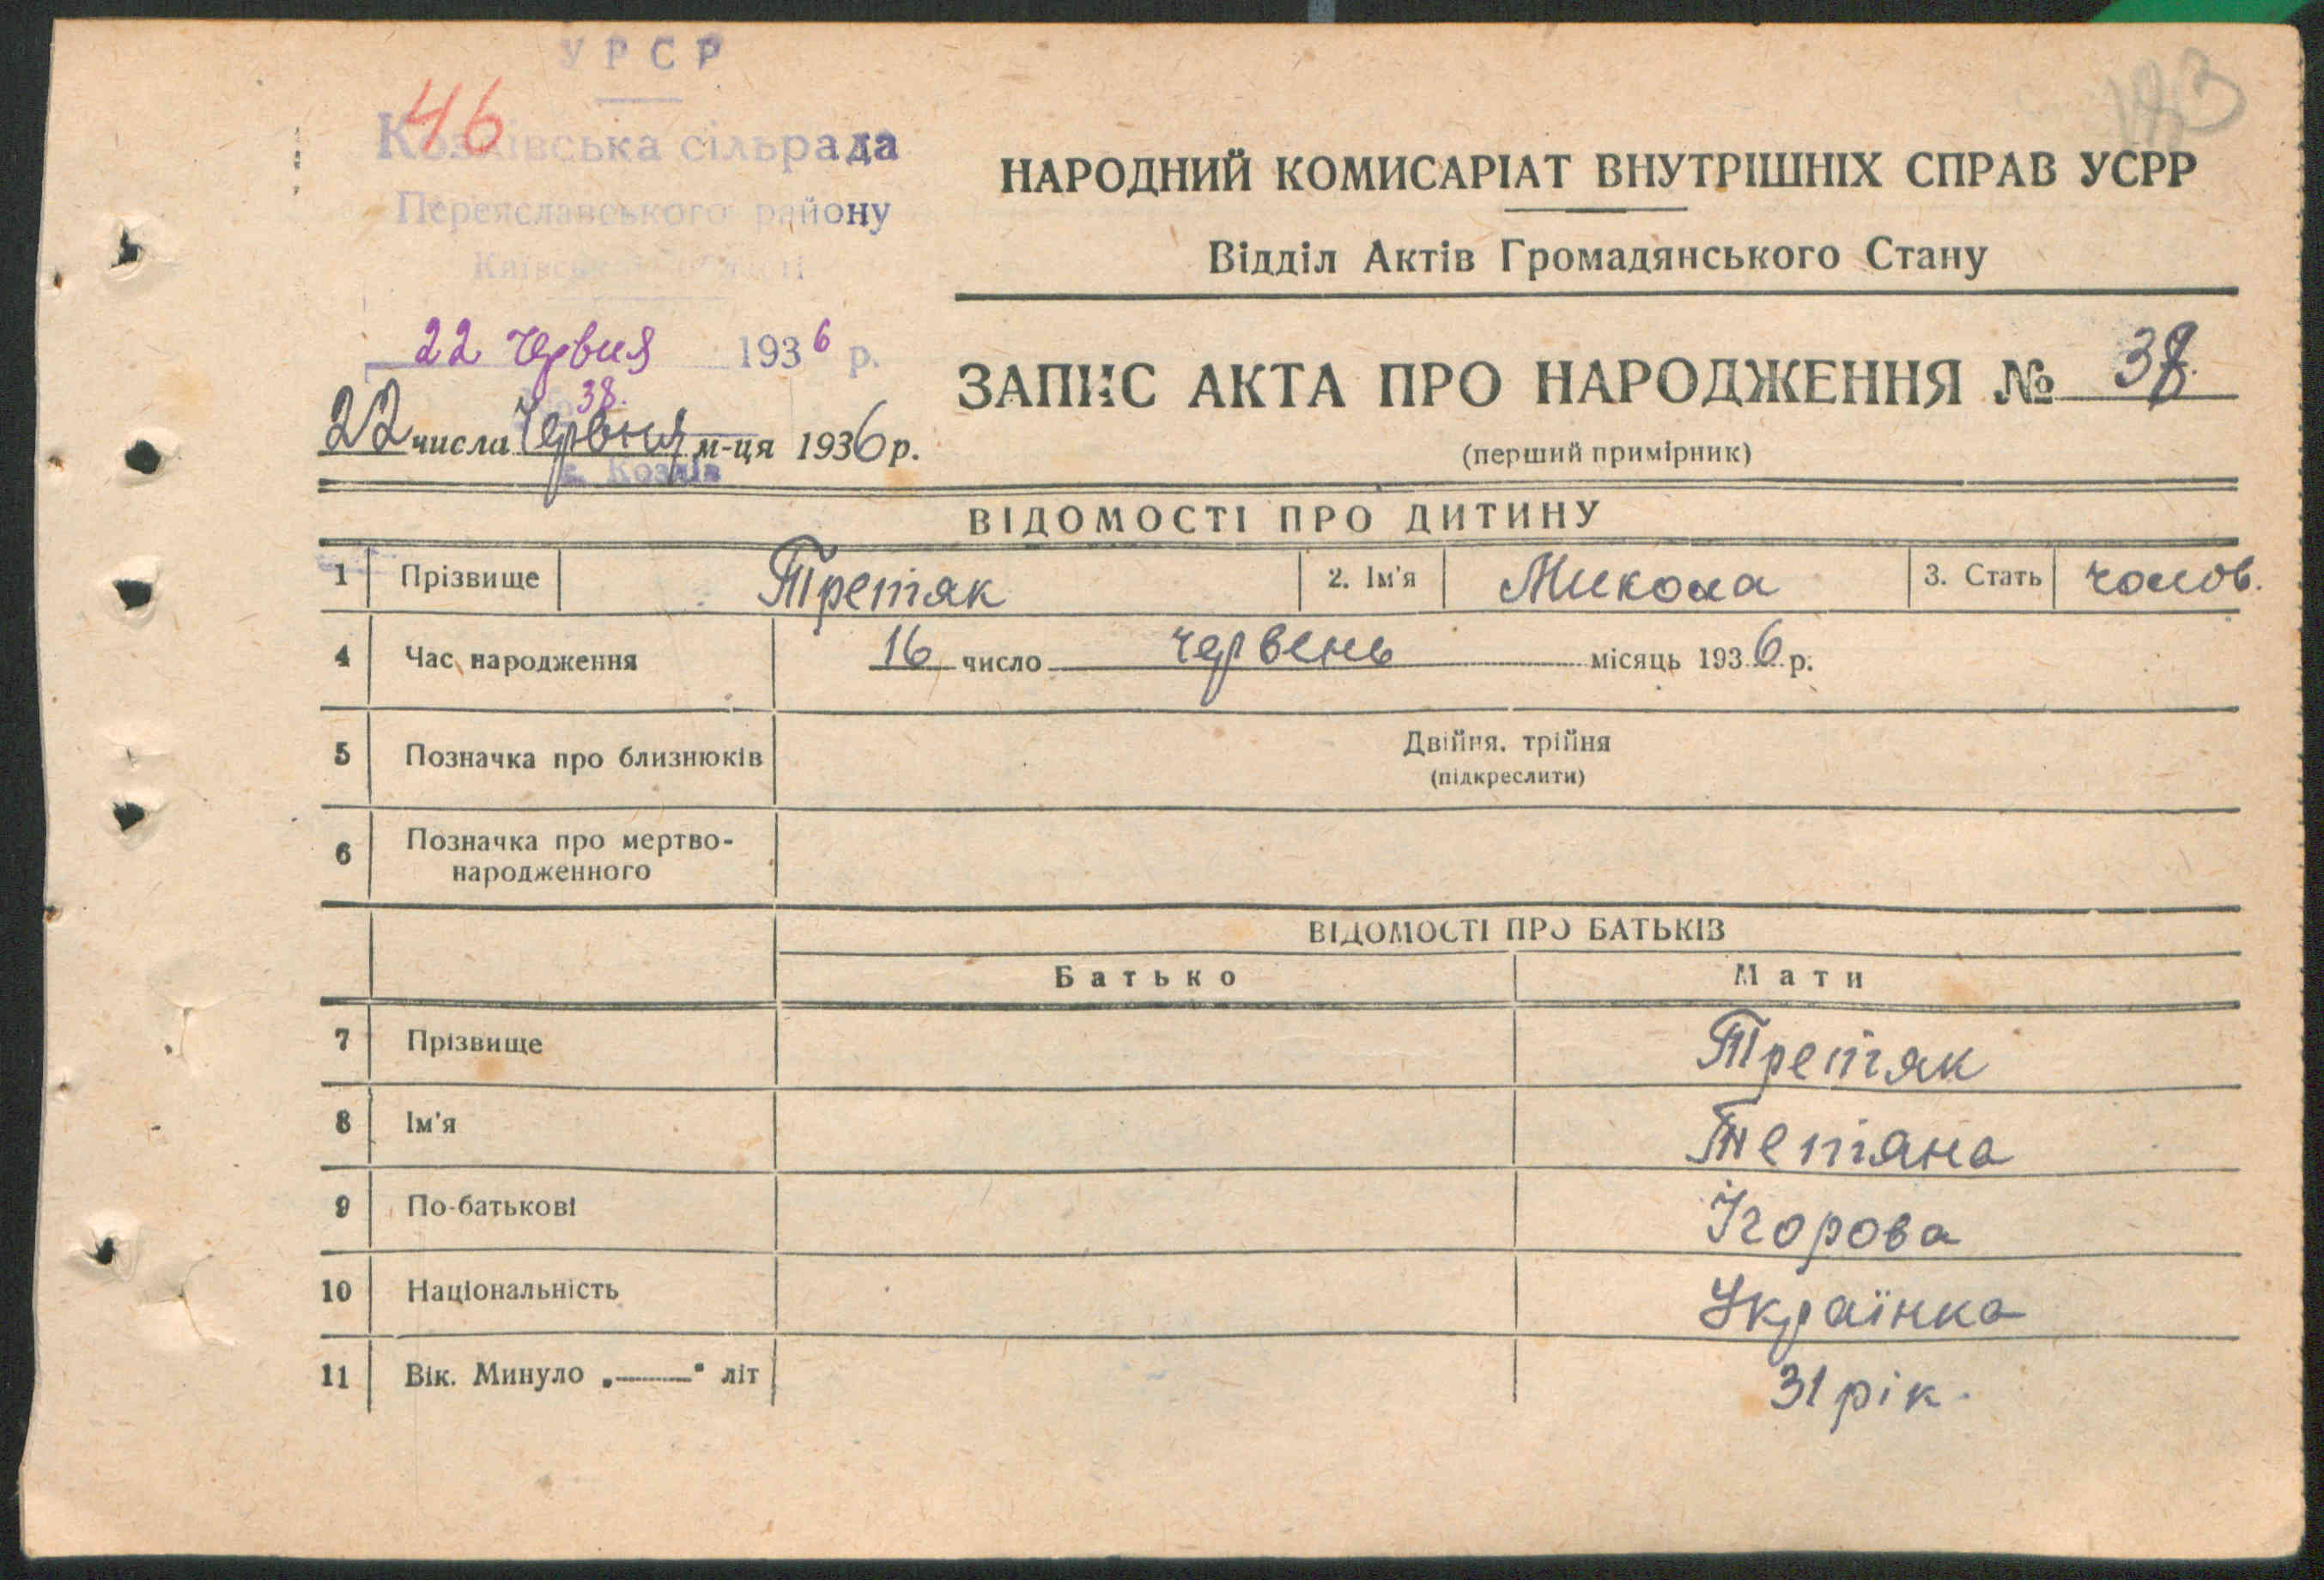 УРСР
46
Козлівська сільрада
Переяславського району
Київської області
22 червня 1936 р.
38.
22 числа Червня м-ця 1936 р.
с. Козлів
НАРОДНИЙ КОМИСАРІАТ ВНУТРІШНІХ СПРАВ УСРР
Відділ Актів Громадянського Стану
ЗАПИС АКТА ПРО НАРОДЖЕННЯ № 38.
(перший примірник)
ВІДОМОСТІ ПРО ДИТИНУ
1 Прізвище Третяк 2. Ім'я Микола 3. Стать чолов.
4 Час народження 16 число червень місяць 1936 р.
5 Позначка про близнюків Двійня, трійня
(підкреслити)
6 Позначка про мертво-
народженного
ВІДОМОСТІ ПРО БАТЬКІВ
Батько Мати
7 Прізвище Третяк
8 Ім'я Тетяна
9 По-батькові Ігорова
10 Національність Українка
11 Вік. Минуло „——“ літ 31 рік.